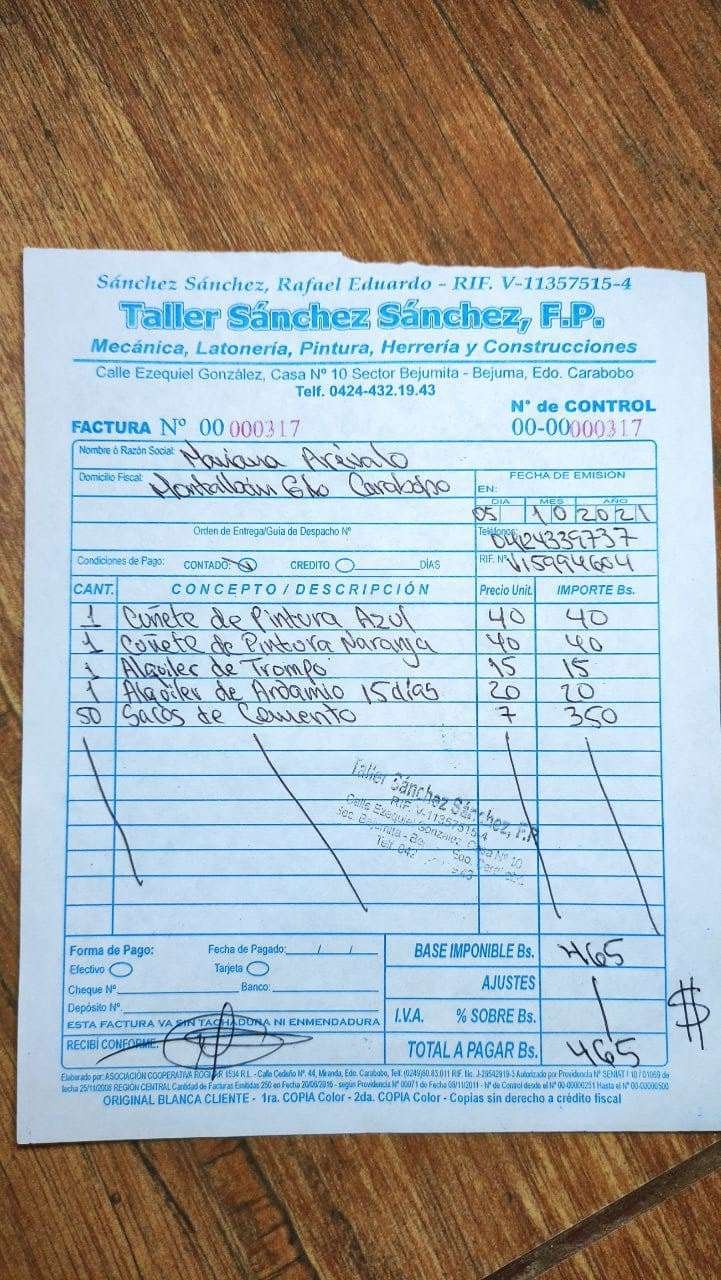 Sánchez Sánchez, Rafael Eduardo - RIF. V-11357515-4
Taller Sánchez Sánchez, F.P.
Mecánica, Latonería, Pintura, Herrería y Construcciones
Calle Ezequiel González, Casa Nº 10 Sector Bejumita - Bejuma, Edo. Carabobo
Telf. 0424-432.19.43
N° de CONTROL
FACTURA Nº 00 000317 00-00000317
Nombre ó Razón Social: Mariana Arévalo
Domicilio Fiscal: Montalbán Edo Carabobo
FECHA DE EMISIÓN
EN:
DIA MES AÑO
05 10 2021
Orden de Entrega/Guía de Despacho Nº
Teléfonos: 04124339737
Condiciones de Pago: CONTADO CREDITO DÍAS RIF. Nº V15994604
CANT. CONCEPTO / DESCRIPCIÓN Precio Unit. IMPORTE Bs.
1 Cuñete de Pintura Azul 40 40
1 Cuñete de Pintura Naranja 40 40
1 Alquiler de Trompo 15 15
1 Alquiler de Andamio 15 días 20 20
50 Sacos de Cemento 7 350
Taller Sánchez Sánchez, F.P
RIF. V-11357515-4
Calle Ezequiel González Casa Nº 10
Sec. Bejumita -
Telf. 042
Forma de Pago: Fecha de Pagado: / /
Efectivo Tarjeta
Cheque Nº Banco:
Depósito Nº.
ESTA FACTURA VA SIN TACHADURA NI ENMENDADURA
RECIBÍ CONFORME:
BASE IMPONIBLE Bs. 465
AJUSTES
I.V.A. % SOBRE Bs.
TOTAL A PAGAR Bs. 465
$
Elaborado por: ASOCIACIÓN COOPERATIVA 1534 R.L. - Calle Cedeño Nº. 44, Miranda, Edo. Carabobo, Telf. (0249)80.83.011 RIF. No. J-29542919-3 Autorizado por Providencia Nº SENIAT
fecha 25/11/2008 REGIÓN CENTRAL Cantidad de Facturas Emitidas 250 en Fecha 20/06/2016 - según Providencia Nº 00071 de Fecha 08/11/2011 - Nº de Control desde el Nº 00-00000251 Hasta el Nº 00-00000500
ORIGINAL BLANCA CLIENTE - 1ra. COPIA Color - 2da. COPIA Color - Copias sin derecho a crédito fiscal